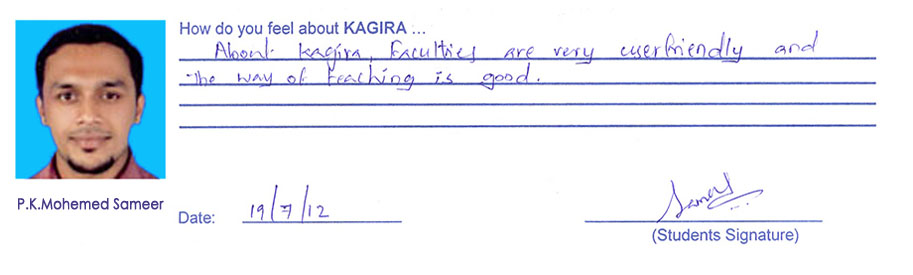 How do you feel about KAGIRA ...
About kagira, Faculties are very userfriendly and
the way of teaching is good.
P.K.Mohemed Sameer
Date: 19/7/12
Sameer
(Students Signature)